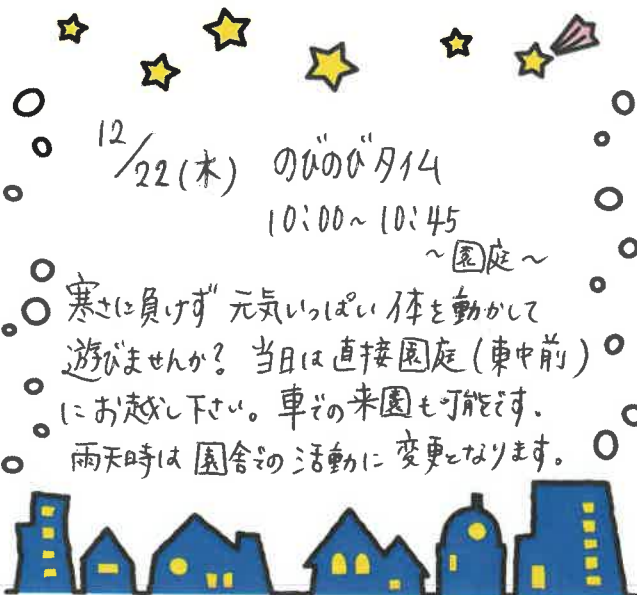 12/22(木) のびのびタイム
10:00~10:45
~園庭~
寒さに負けず 元気いっぱい 体を動かして
遊びませんか? 当日は直接園庭(東中前)
にお越し下さい。車での来園も可能です.
雨天時は園舎での活動に変更となります。